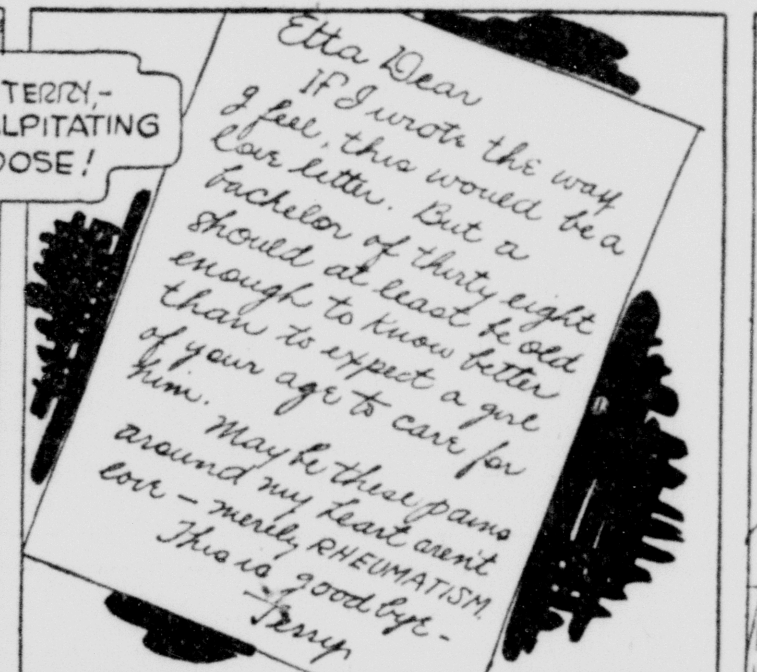 TERRY,-
LPITATING
OOSE!
Etta Dear
If I wrote the way
I feel, this would be a
love letter. But a
bachelor of thirty eight
should at least be old
enough to know better
than to expect a girl
of your age to care for
him.
Maybe these pains
around my heart aren't
love – merely RHEUMATISM.
This is goodbye-
Terry